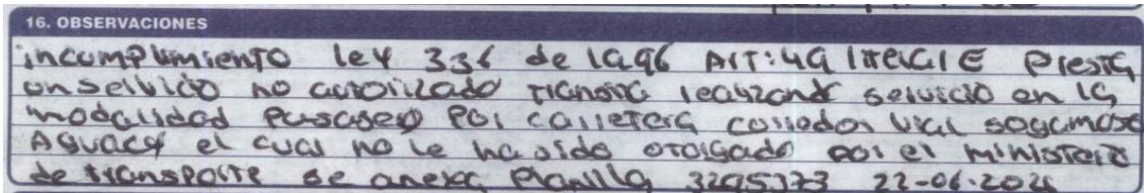 16. OBSERVACIONES
incumplimiento ley 336 de 1996 Art: 49 literal E Presta
un servicio no autorizado transita realizando servicio en la
modalidad Pasajero Por carretera corredor vial sogamoso
Aguazul el cual no le ha sido otorgado por el ministerio
de transporte se anexa Planilla 3295373 22-06-2021